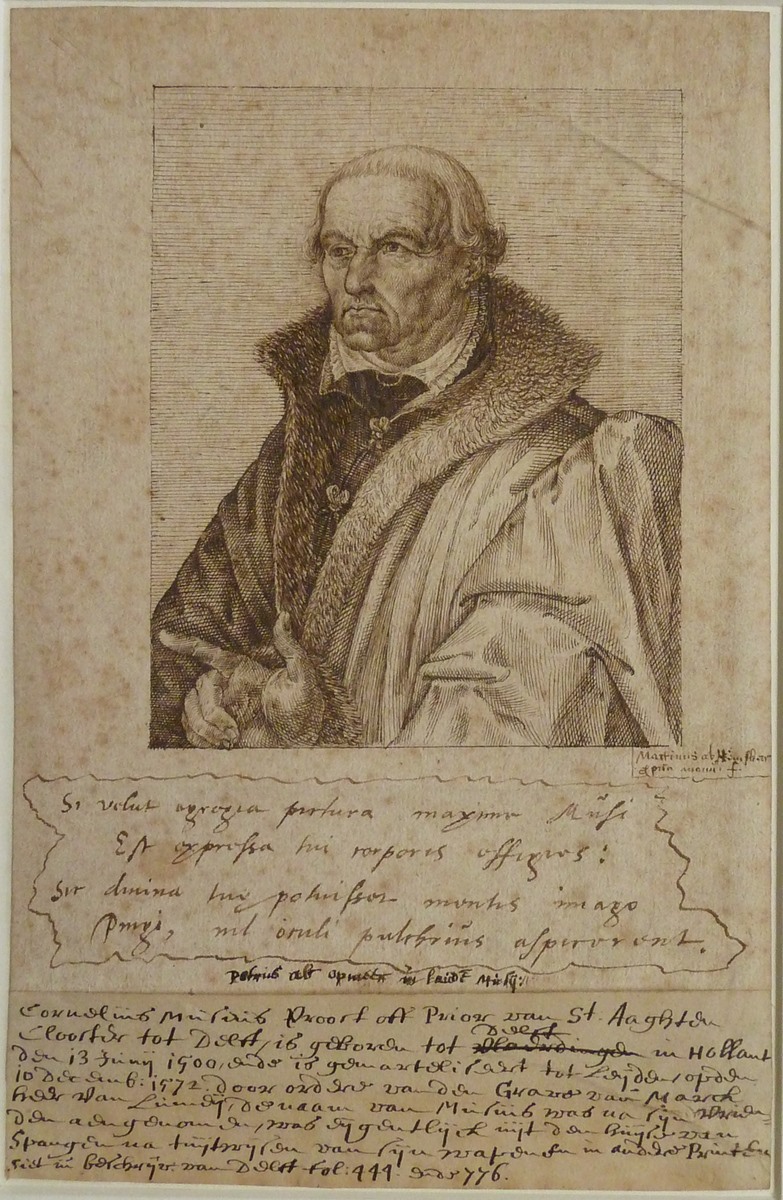 Martinus ab Hemsker
Si velut egregia pictura maxime Musi
Est expressa tui corporis effigies:
Sic divina tuę potuisset mentis imago
Pingi, nil oculi pulchrius aspicerent.
petrus ab opmeer in laudē Musij:
Cornelius Musius Proost off Prior van St. Aaghten
Clooster tot Delft, is geboren tot Delft in Hollant
den 13 Junij 1500, ende is gemarteliseert tot Leijden, opden
10 Decemb: 1572. door ordere van den Grave van Marck
heer van Lumeij, de naam van Musius was na sijn
den aengenomen, was eijgentlijck uijt den huijse van
Spangen na uijtwijsen van sijn wapenen in andre Printen
siet in beschrijv: van Delft fol: 444. ende 776.